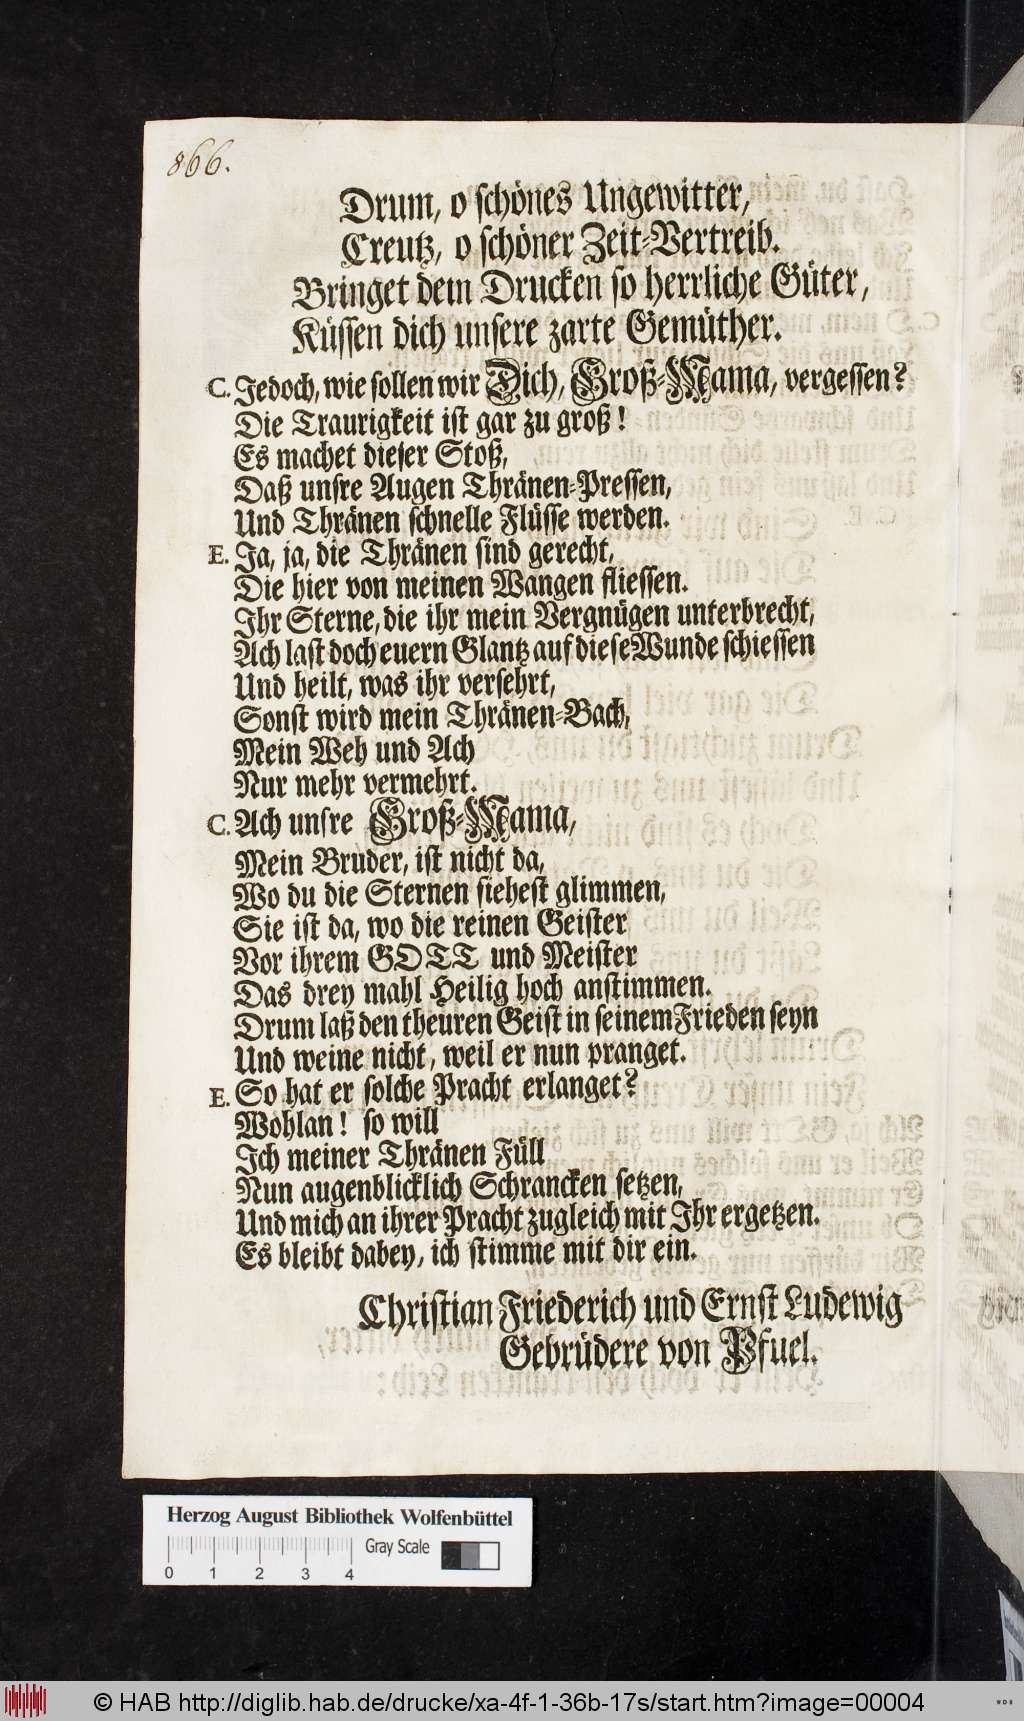 866.
Drum, o schönes Ungewitter,
Creutz, o schöner Zeit-Vertreib.
Bringet dein Drucken so herrliche Güter,
Küssen dich unsere zarte Gemüther.
C. Jedoch, wie sollen wir Dich, Groß-Mama, vergessen?
Die Traurigkeit ist gar zu groß!
Es machet dieser Stoß,
Daß unsre Augen Thränen-Pressen,
Und Thränen schnelle Flüsse werden.
E. Ja, ja, die Thränen sind gerecht,
Die hier von meinen Wangen fliessen.
Ihr Sterne, die ihr mein Vergnügen unterbrecht,
Ach last doch euern Glantz auf diese Wunde schiessen
Und heilt, was ihr versehrt,
Sonst wird mein Thränen-Bach,
Mein Weh und Ach
Nur mehr vermehrt.
C. Ach unsre Groß-Mama,
Mein Bruder, ist nicht da,
Wo du die Sternen siehest glimmen,
Sie ist da, wo die reinen Geister
Vor ihrem GOTT und Meister
Das drey mahl Heilig hoch anstimmen.
Drum laß den theuren Geist in seinem Frieden seyn
Und weine nicht, weil er nun pranget.
E. So hat er solche Pracht erlanget?
Wohlan! so will
Ich meiner Thränen Füll
Nun augenblicklich Schrancken setzen,
Und mich an ihrer Pracht zugleich mit Ihr ergetzen.
Es bleibt dabey, ich stimme mit dir ein.
Christian Friederich und Ernst Ludewig
Gebrüdere von Pfuel.
Herzog August Bibliothek Wolfenbüttel
Gray Scale
0 1 2 3 4
© HAB http://diglib.hab.de/drucke/xa-4f-1-36b-17s/start.htm?image=00004